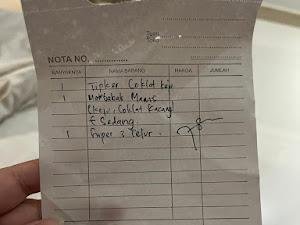 Tgl.
NOTA NO.
BANYAKNYA NAMA BARANG HARGA JUMLAH
1 Tipker Coklat keju
1 Martabak Manis
Keju, Coklat Kacang
Sedang
1 Super 3 Telur